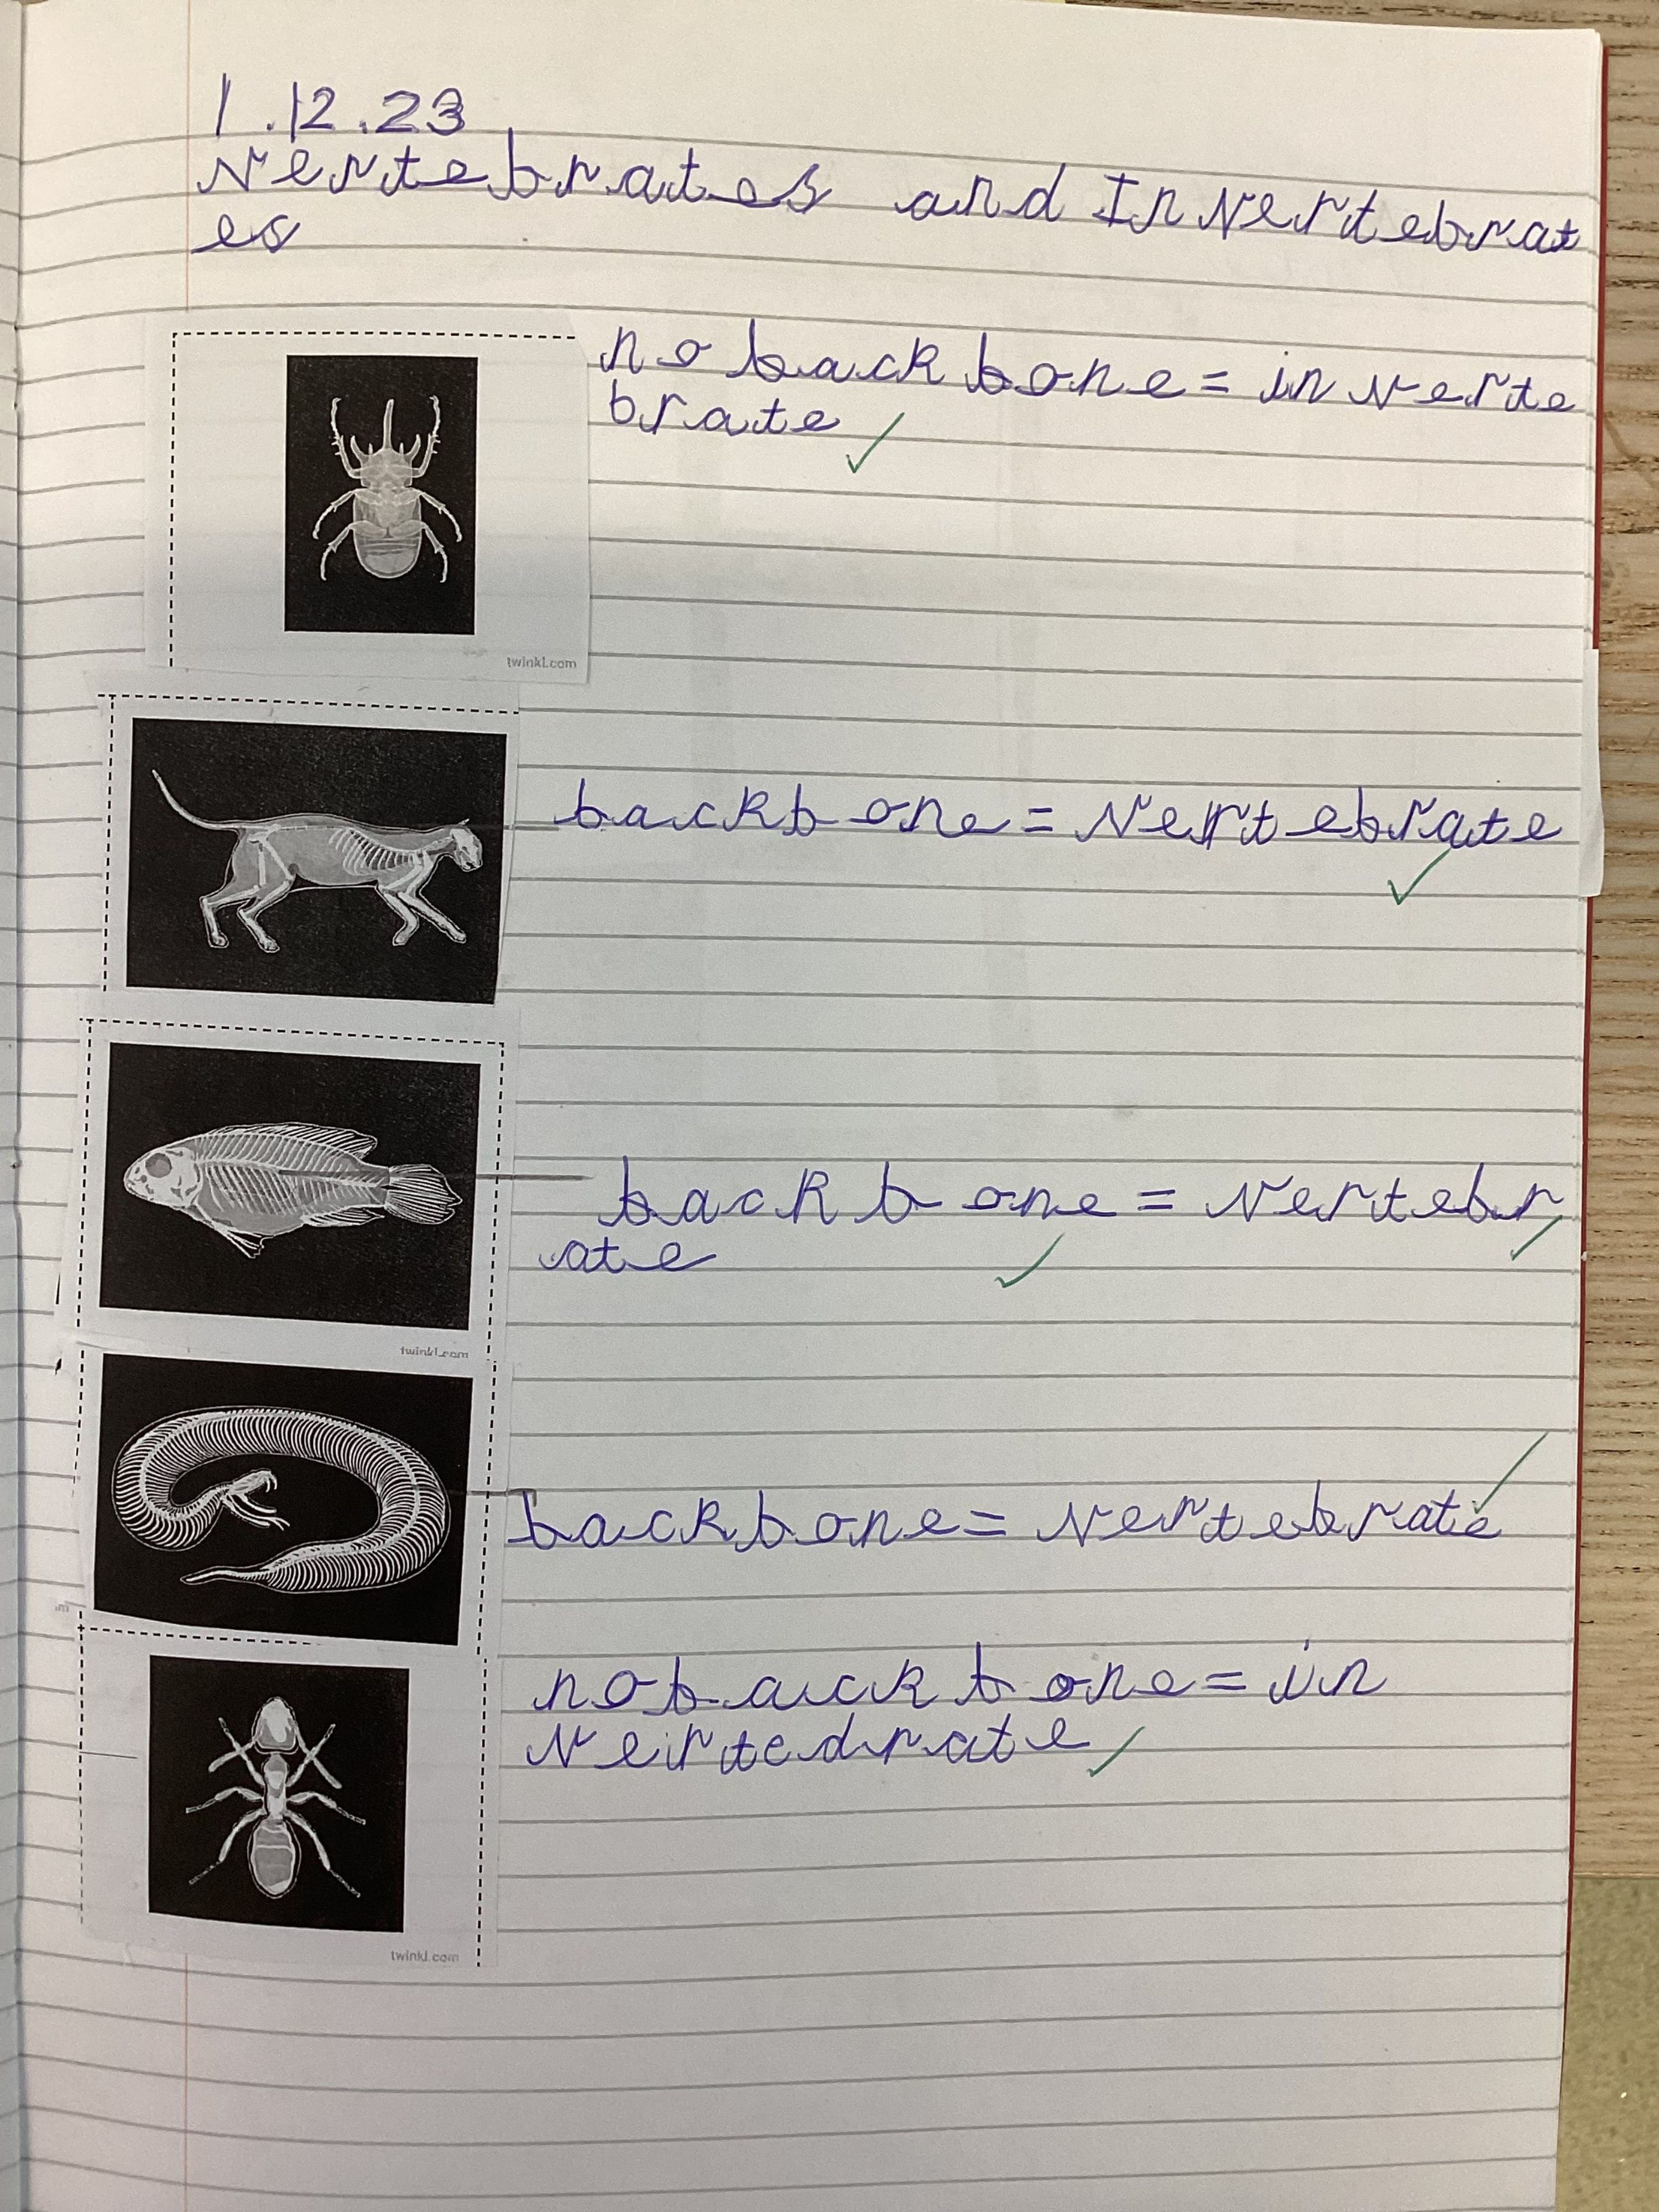 1.12.23
Vertebrates and Invertebrat
es
no backbone = inverte
brate
twinkl.com
backbone = vertebrate
backbone = vertebr
ate
twinkl.com
backbone = vertebrate
no backbone = in
vertedrate
twinkl.com